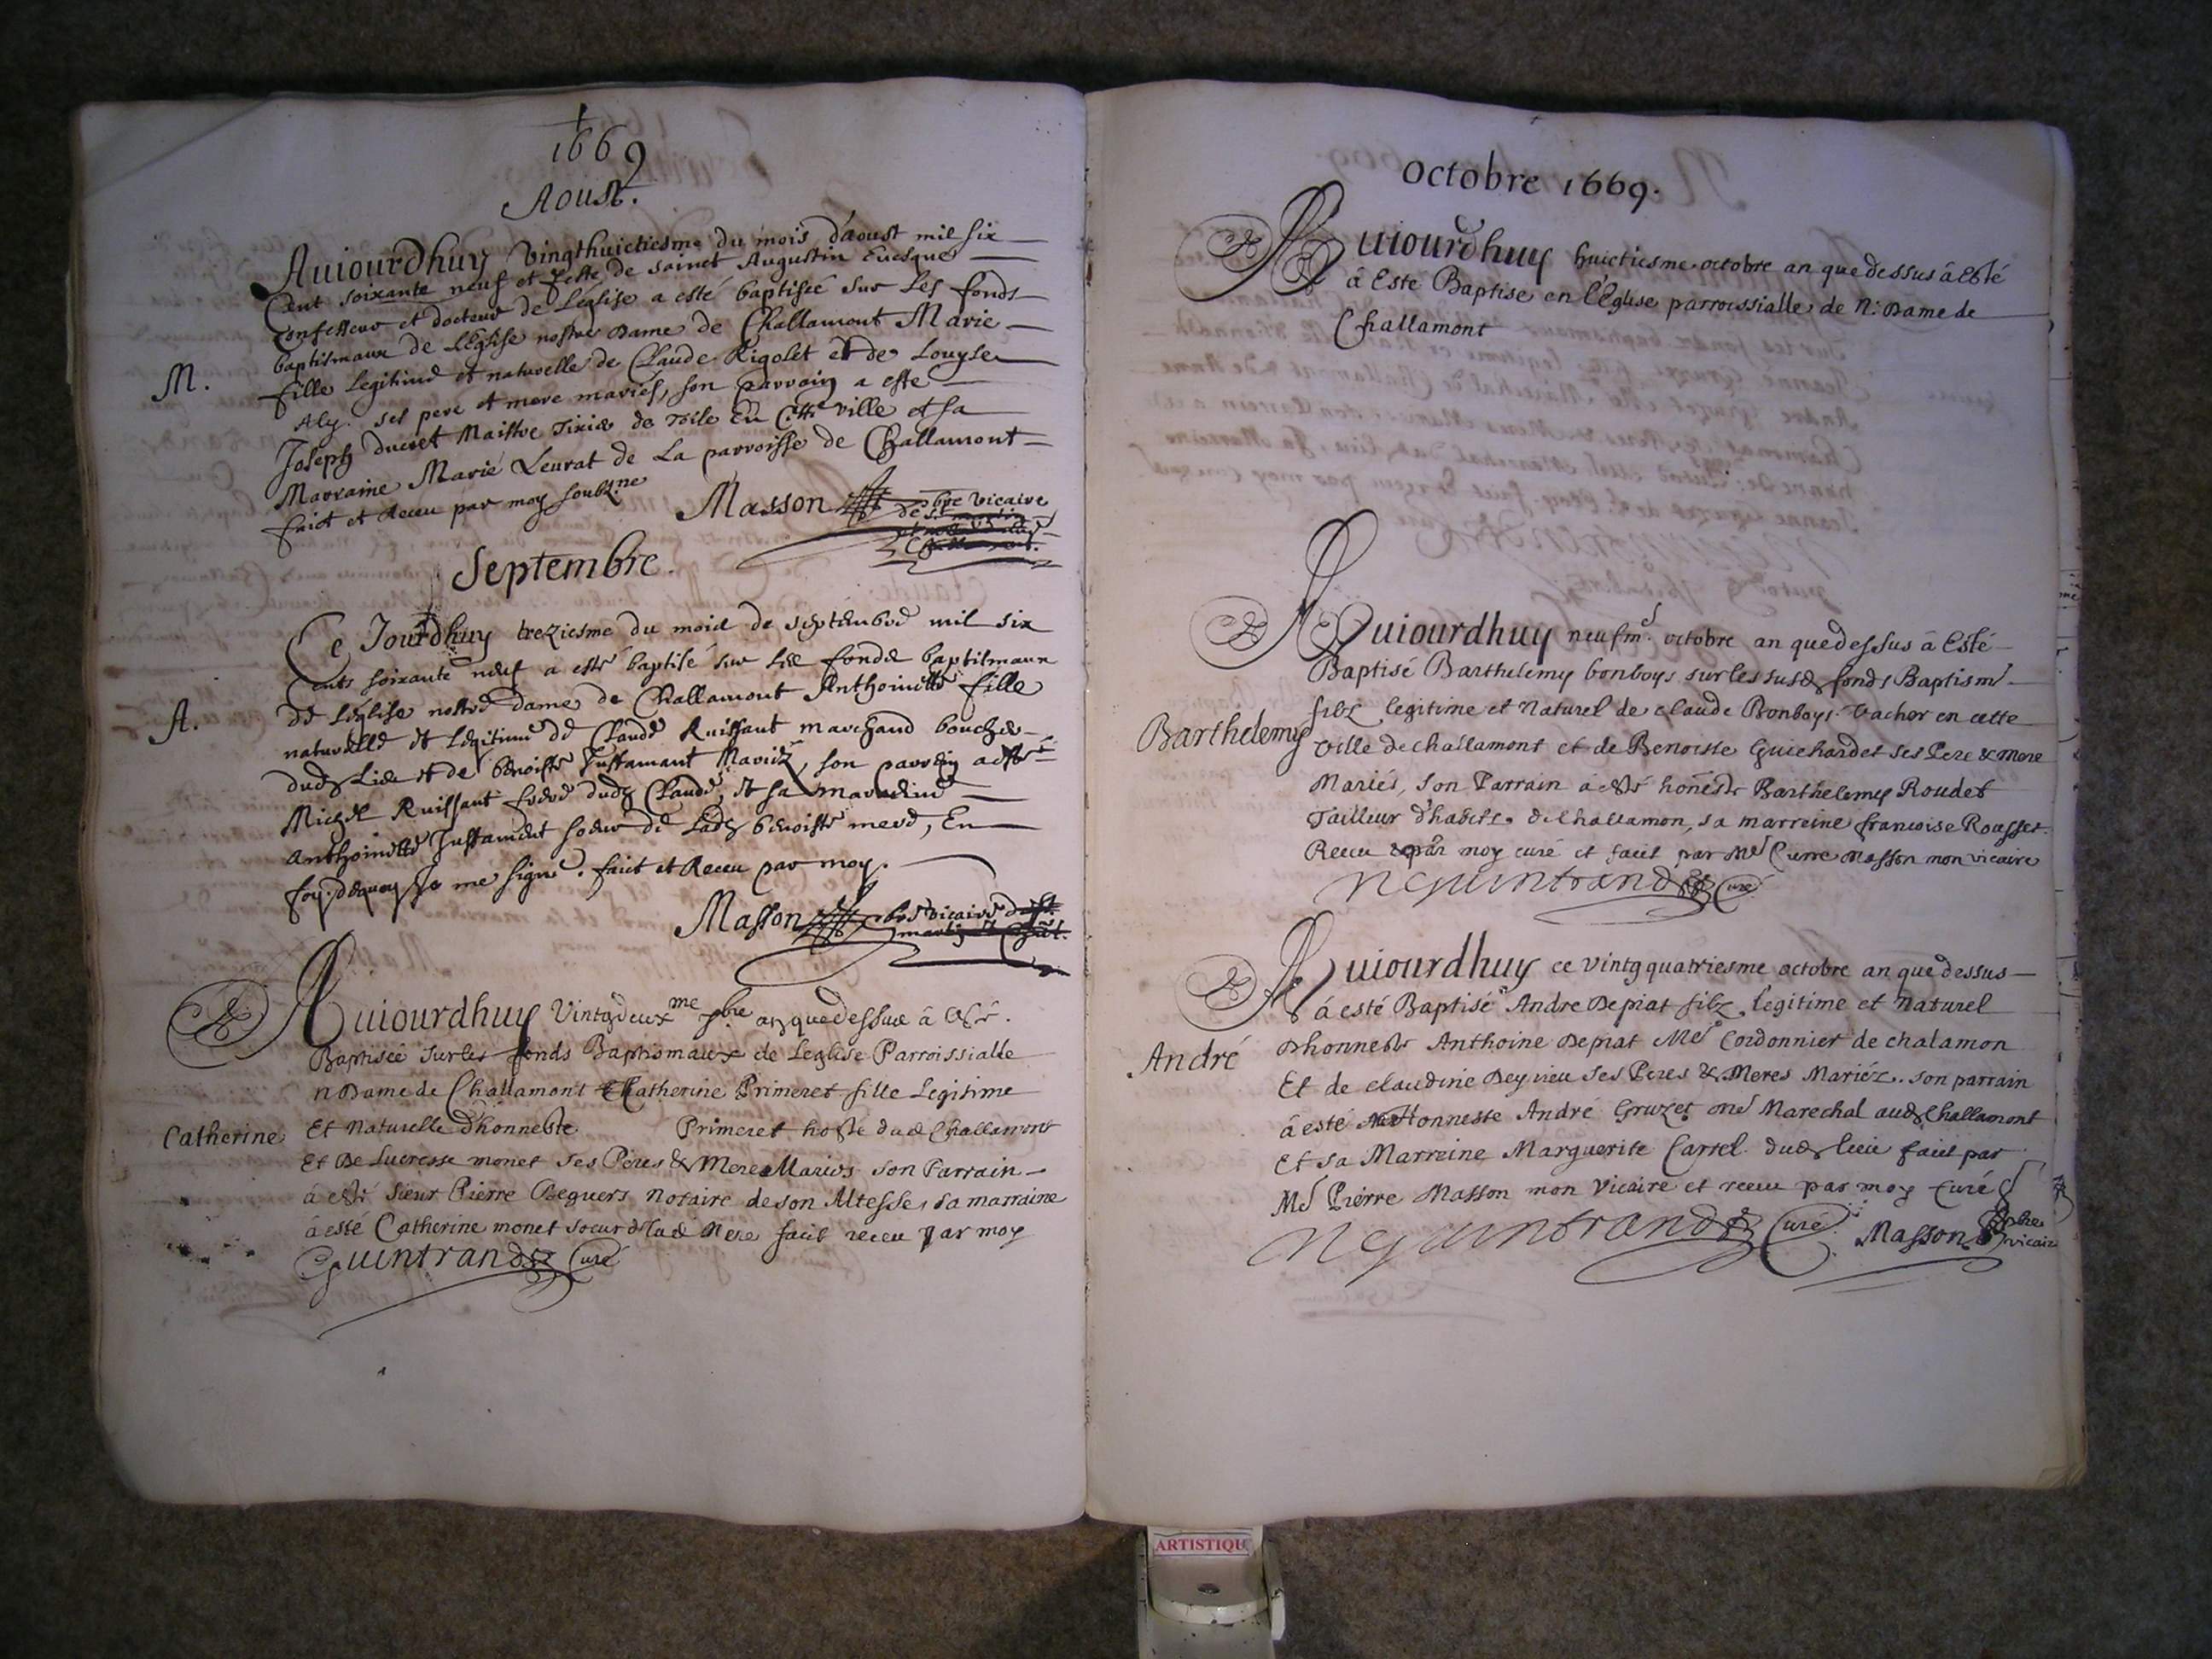 1669
Aoust.
Auiourdhuy vingthuictiesme du mois d'aoust mil six
Cent soixante neuf et feste de sainct Augustin Euesque
Confesseur et docteur de L'eglise a esté baptisée sur Les fonds
baptismaux de L'Eglise nostre Dame de Challamont Marie
M.
fille legitime et naturelle de Claude Rigolet et de Louyse
Aly. ses pere et mere mariés, son parrain a esté
Joseph ducret Maistre Tixier de Toile En Cette ville et sa
Marraine Marie Leurat de La parroisse de Challamont
faict et Receu par moy soubz.ne
Masson pbre vicaire
de St
Septembre.
Ce Jourdhuy treziesme du mois de septembre mil six
Cents soixante neuf a esté baptisé sur les fonds baptismaux
de L'eglise nostre dame de Challamont Anthoinette fille
A.
naturelle et Legitime de Claude Ruissant marchand boucher
dud Lieu et de benoiste Justamant Mariez, son parrein a esté
Michel Ruissant frere dud Claude, et sa marreine
Anthoinette Justamant soeur de Lad benoiste mere, En
foy dequoy Je me signe. faict et Receu par moy.
Masson pbre vicaire de St.
Auiourdhuy vintgdeux.me 7.bre an quedessus â esté.
Baptisée sur les fonds Baptismaux de Leglise Parroissialle
n Dame de Challamont Catherine Primeret fille Legitime
Catherine
Et Naturelle d'honneste Primeret hoste dud Challamont
Et De Lucresse monet ses Peres & Mere Mariés son Parrain
â esté sieur Pierre Beguers Notaire de son Altesse, sa marraine
â esté Catherine monet soeur de lad Mere fait receu par moy
Guintrand Curé
octobre 1669.
Auiourdhuy huictiesme octobre an que dessus â Esté
â Esté Baptise en l'Eglise parroissialle de N: Dame de
Challamont
Auiourdhuy neufm.e octobre an quedessus â Esté
Baptisé Barthelemy bonboys sur les susd fonds Baptism.
filz legitime et Naturel de claude Bonboys. Vacher en cette
Barthelemy
ville de challamont et de Benoiste Guichardet ses Pere & mere
Mariés, son Parrain â esté honeste Barthelemy Roudet
Tailleur d'habits. de challamon, sa marreine francoise Rousset.
Receu par moy curé et facit par Me Pierre Masson mon vicaire
N Guintrand Curé
Auiourdhuy ce vintgquatriesme octobre an que dessus
â esté Baptisé Andre Depiat filz legitime et Naturel
D'honneste Anthoine Depiat Me Cordonnier de chalamon
André
Et de claudine Deyvieu ses Peres & Meres Mariéz. son parrain
â esté Honneste André Gruzet me Marechal aud Challamont
Et sa Marreine Marguerite Carrel. dud lieu fait par
Me Pierre Masson mon Vicaire et receu par moy curé
N Guintrand Curé Masson pbre
vicaire
ARTISTIQU